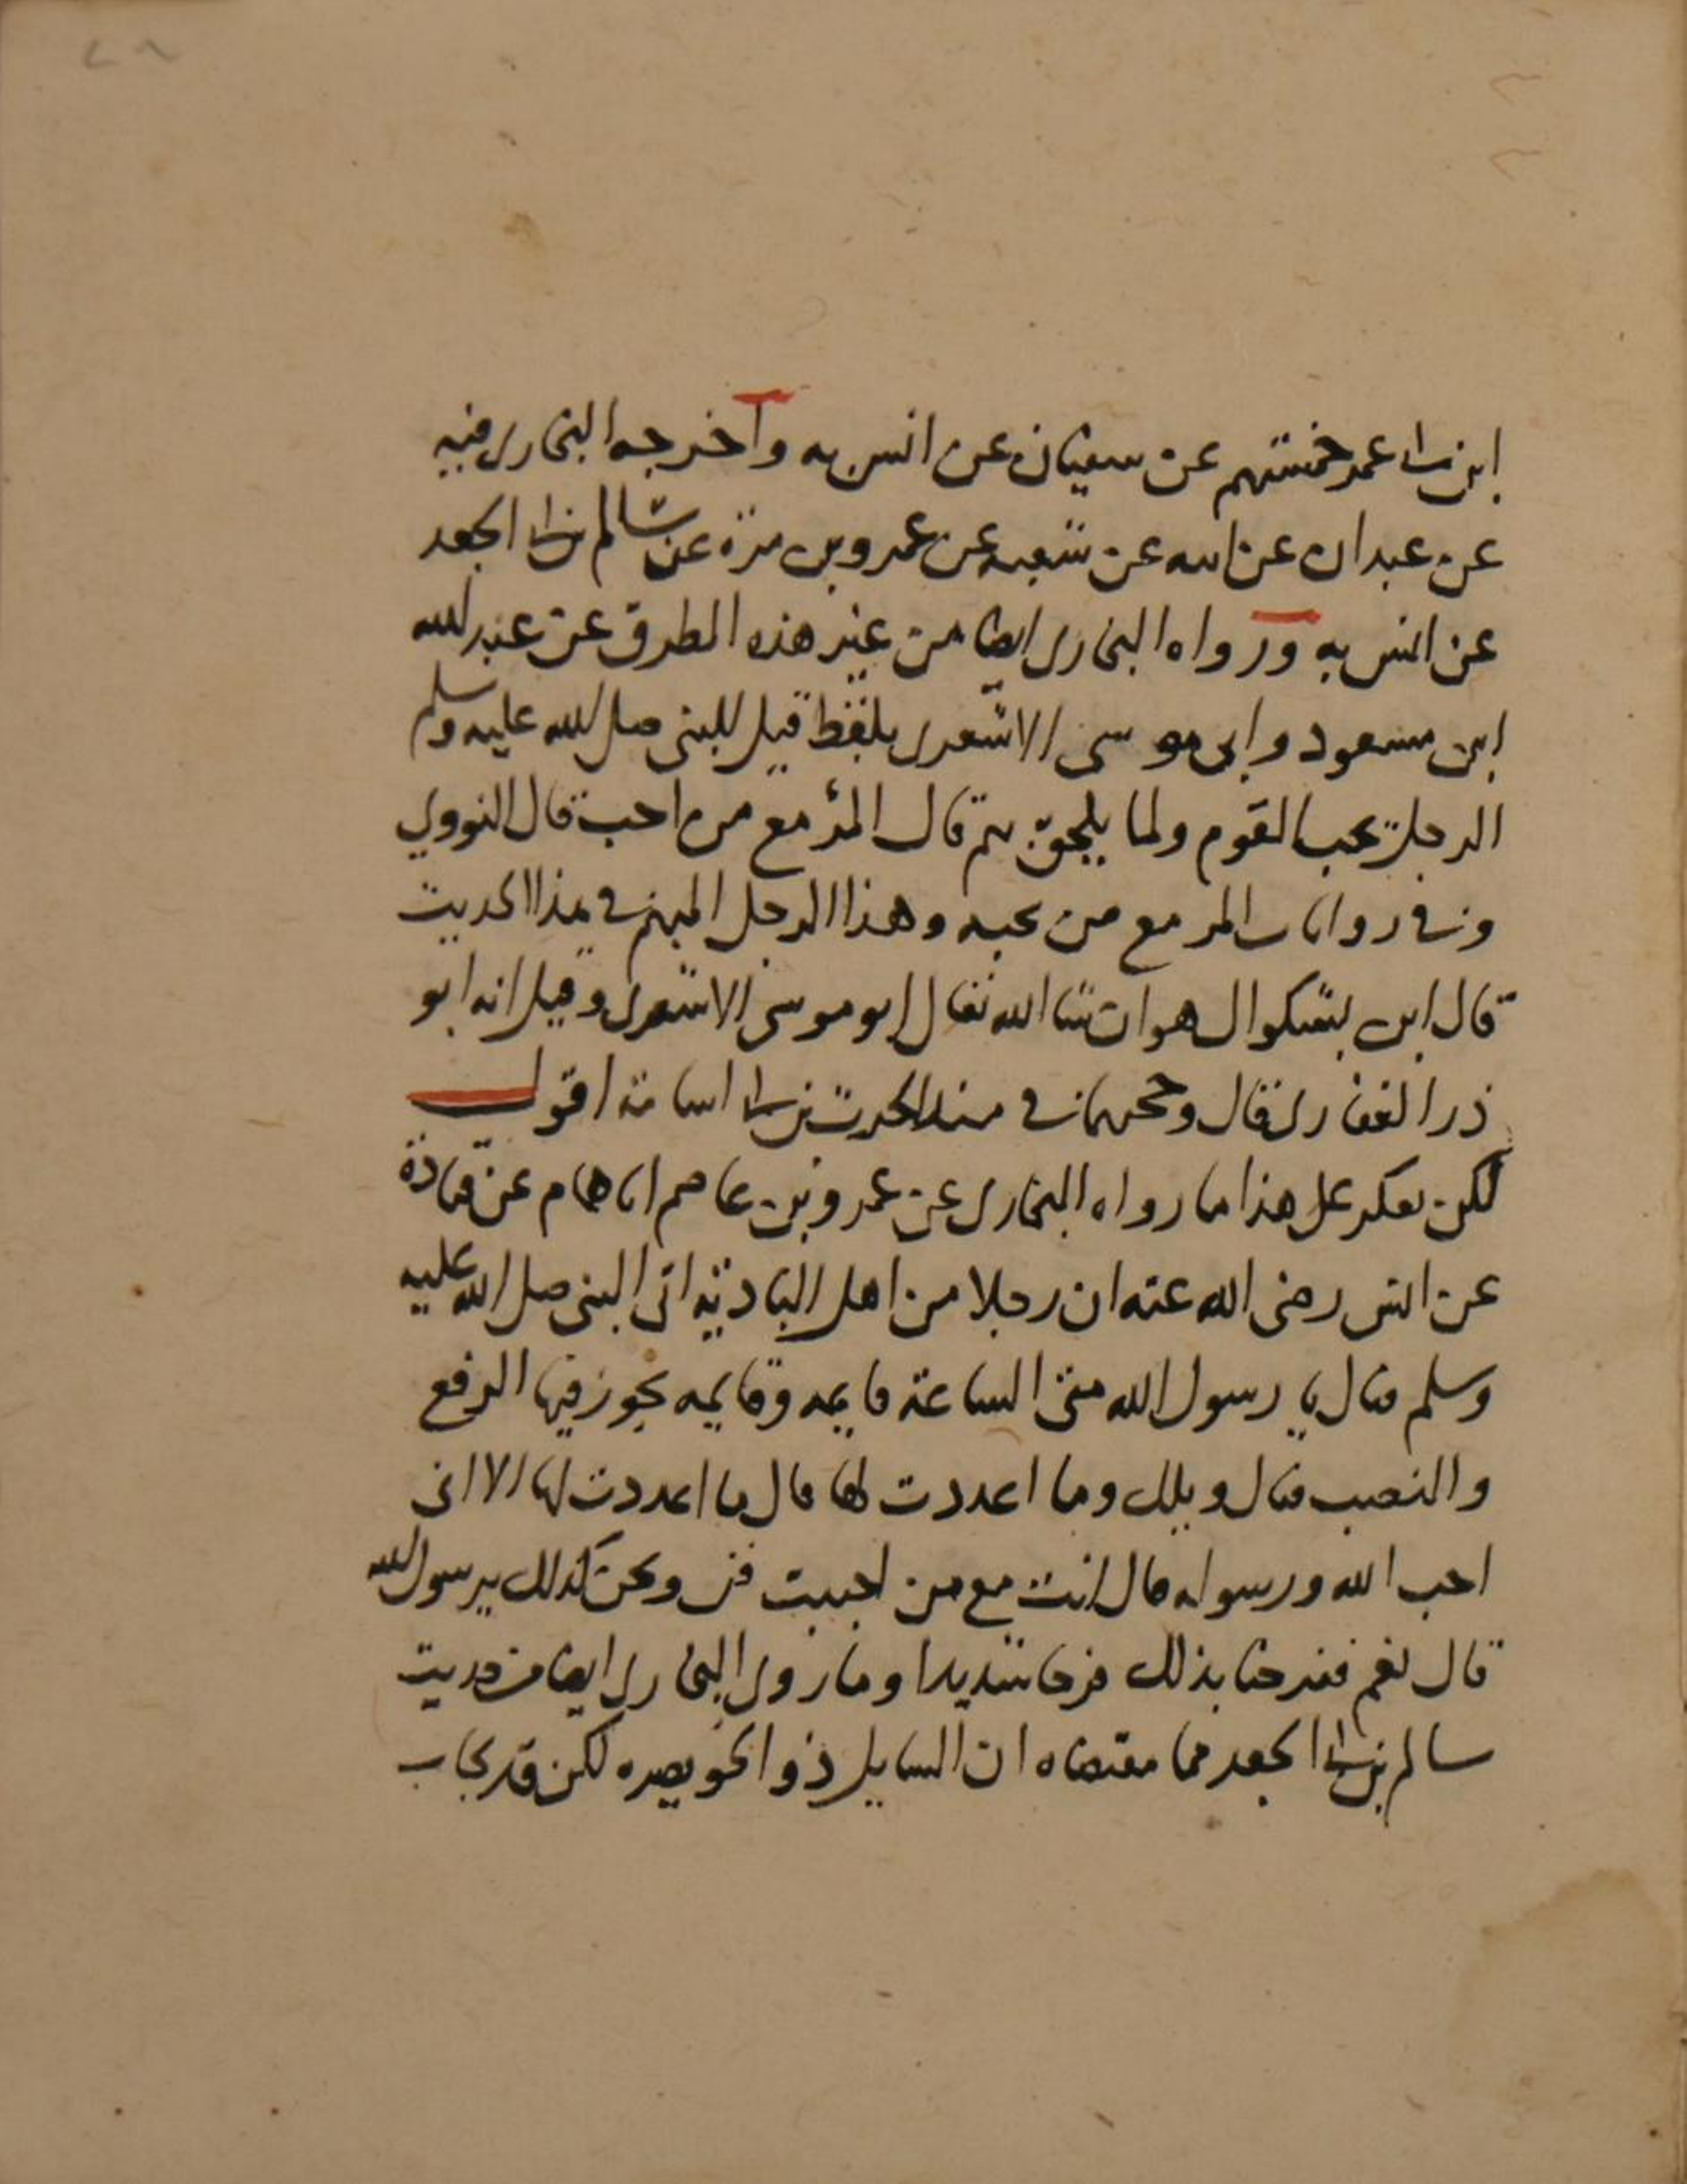 ابن ابى عمر خمستهم عن سفيان عن انس به واخرجه البخارى فيه
عن عبدان عن ابيه عن شعبه عن عمرو بن مرة عن سالم بن ابى الجعد
عن انس به ورواه البخارى ايضا من غير هذه الطرق عن عبد الله
ابن مسعود وابى موسى الاشعرى بلفظ قيل للنبى صلى الله عليه وسلم
الرجل يحب القوم ولما يلحق بهم قال المرء مع من احب قال النووي
وفى روايات المر مع من يحبه وهذا الرجل المبهم فى هذا الحديث
قال ابن بشكوال هو ان شا الله تعالى ابو موسى الاشعرى وقيل انه ابو
ذر الغفارى قال فى مسند الحرث بن ابى اسامة اقول
لكن يعكر على هذا ما رواه البخارى عن عمرو بن عاصم انا همام عن قتادة
عن انس رضى الله عنه ان رجلا من اهل البادية اتى النبى صلى الله عليه
وسلم فقال يا رسول الله متى الساعة قايمه وقايمه يجوز فيها الرفع
والنصب فقال ويلك وما اعددت لها قال ما اعددت لها الا انى
احب الله ورسوله قال انت مع من احببت ونحن كذلك يرسول الله
قال نعم ففرحنا بذلك فرحا شديدا وما روى البخارى ايضا من حديث
سالم بن ابى الجعد مما مقتضاه ان السايل ذو الخويصره لكن قد يجاب